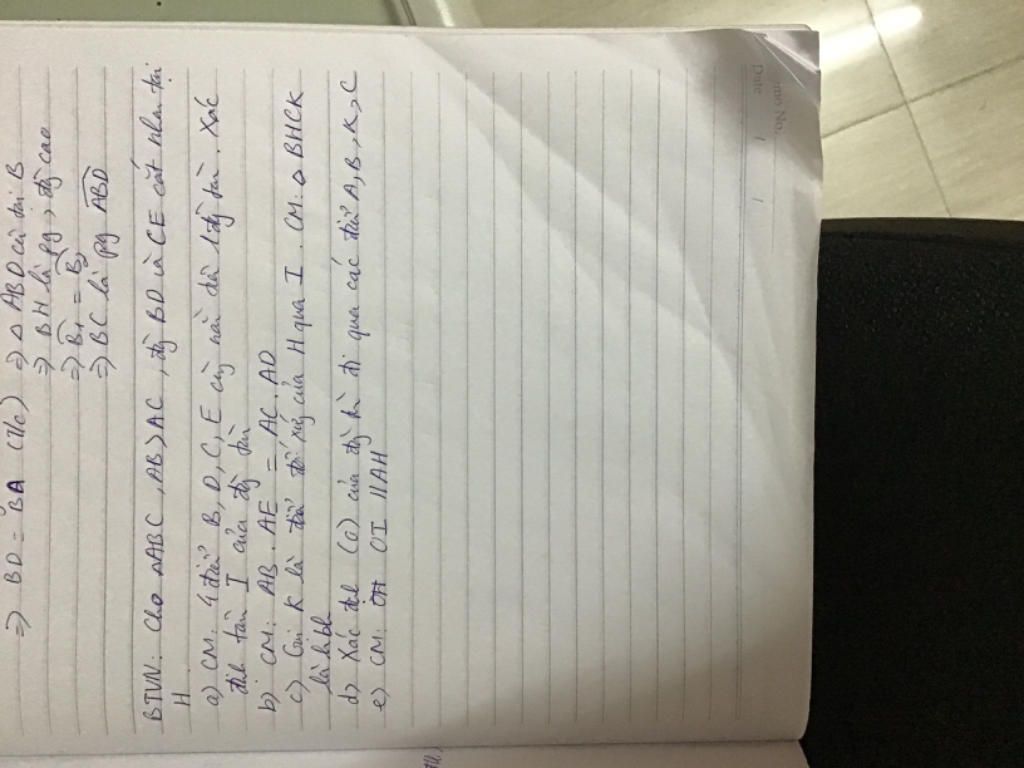 ⇒ BD = BA (t/c) ⇒ Δ ABD cân tại B
⇒ BH là pg, đg cao
⇒ B₁ = B₂
⇒ BC là pg ABD
BTVN: Cho ΔABC, AB>AC, đg BD và CE cắt nhau tại
H
a) CM: 4 điểm B, D, C, E cùng nằm trên 1 đg tròn. Xác
định tâm I của đg tròn
b) CM: AB. AE = AC. AD
c) Gọi K là điểm đối xứng của H qua I. CM: Δ BHCK
là hbh
d) Xác định (O) của đg tròn đi qua các điểm A, B, K, C
e) CM: OI // AH
No.
Date / /